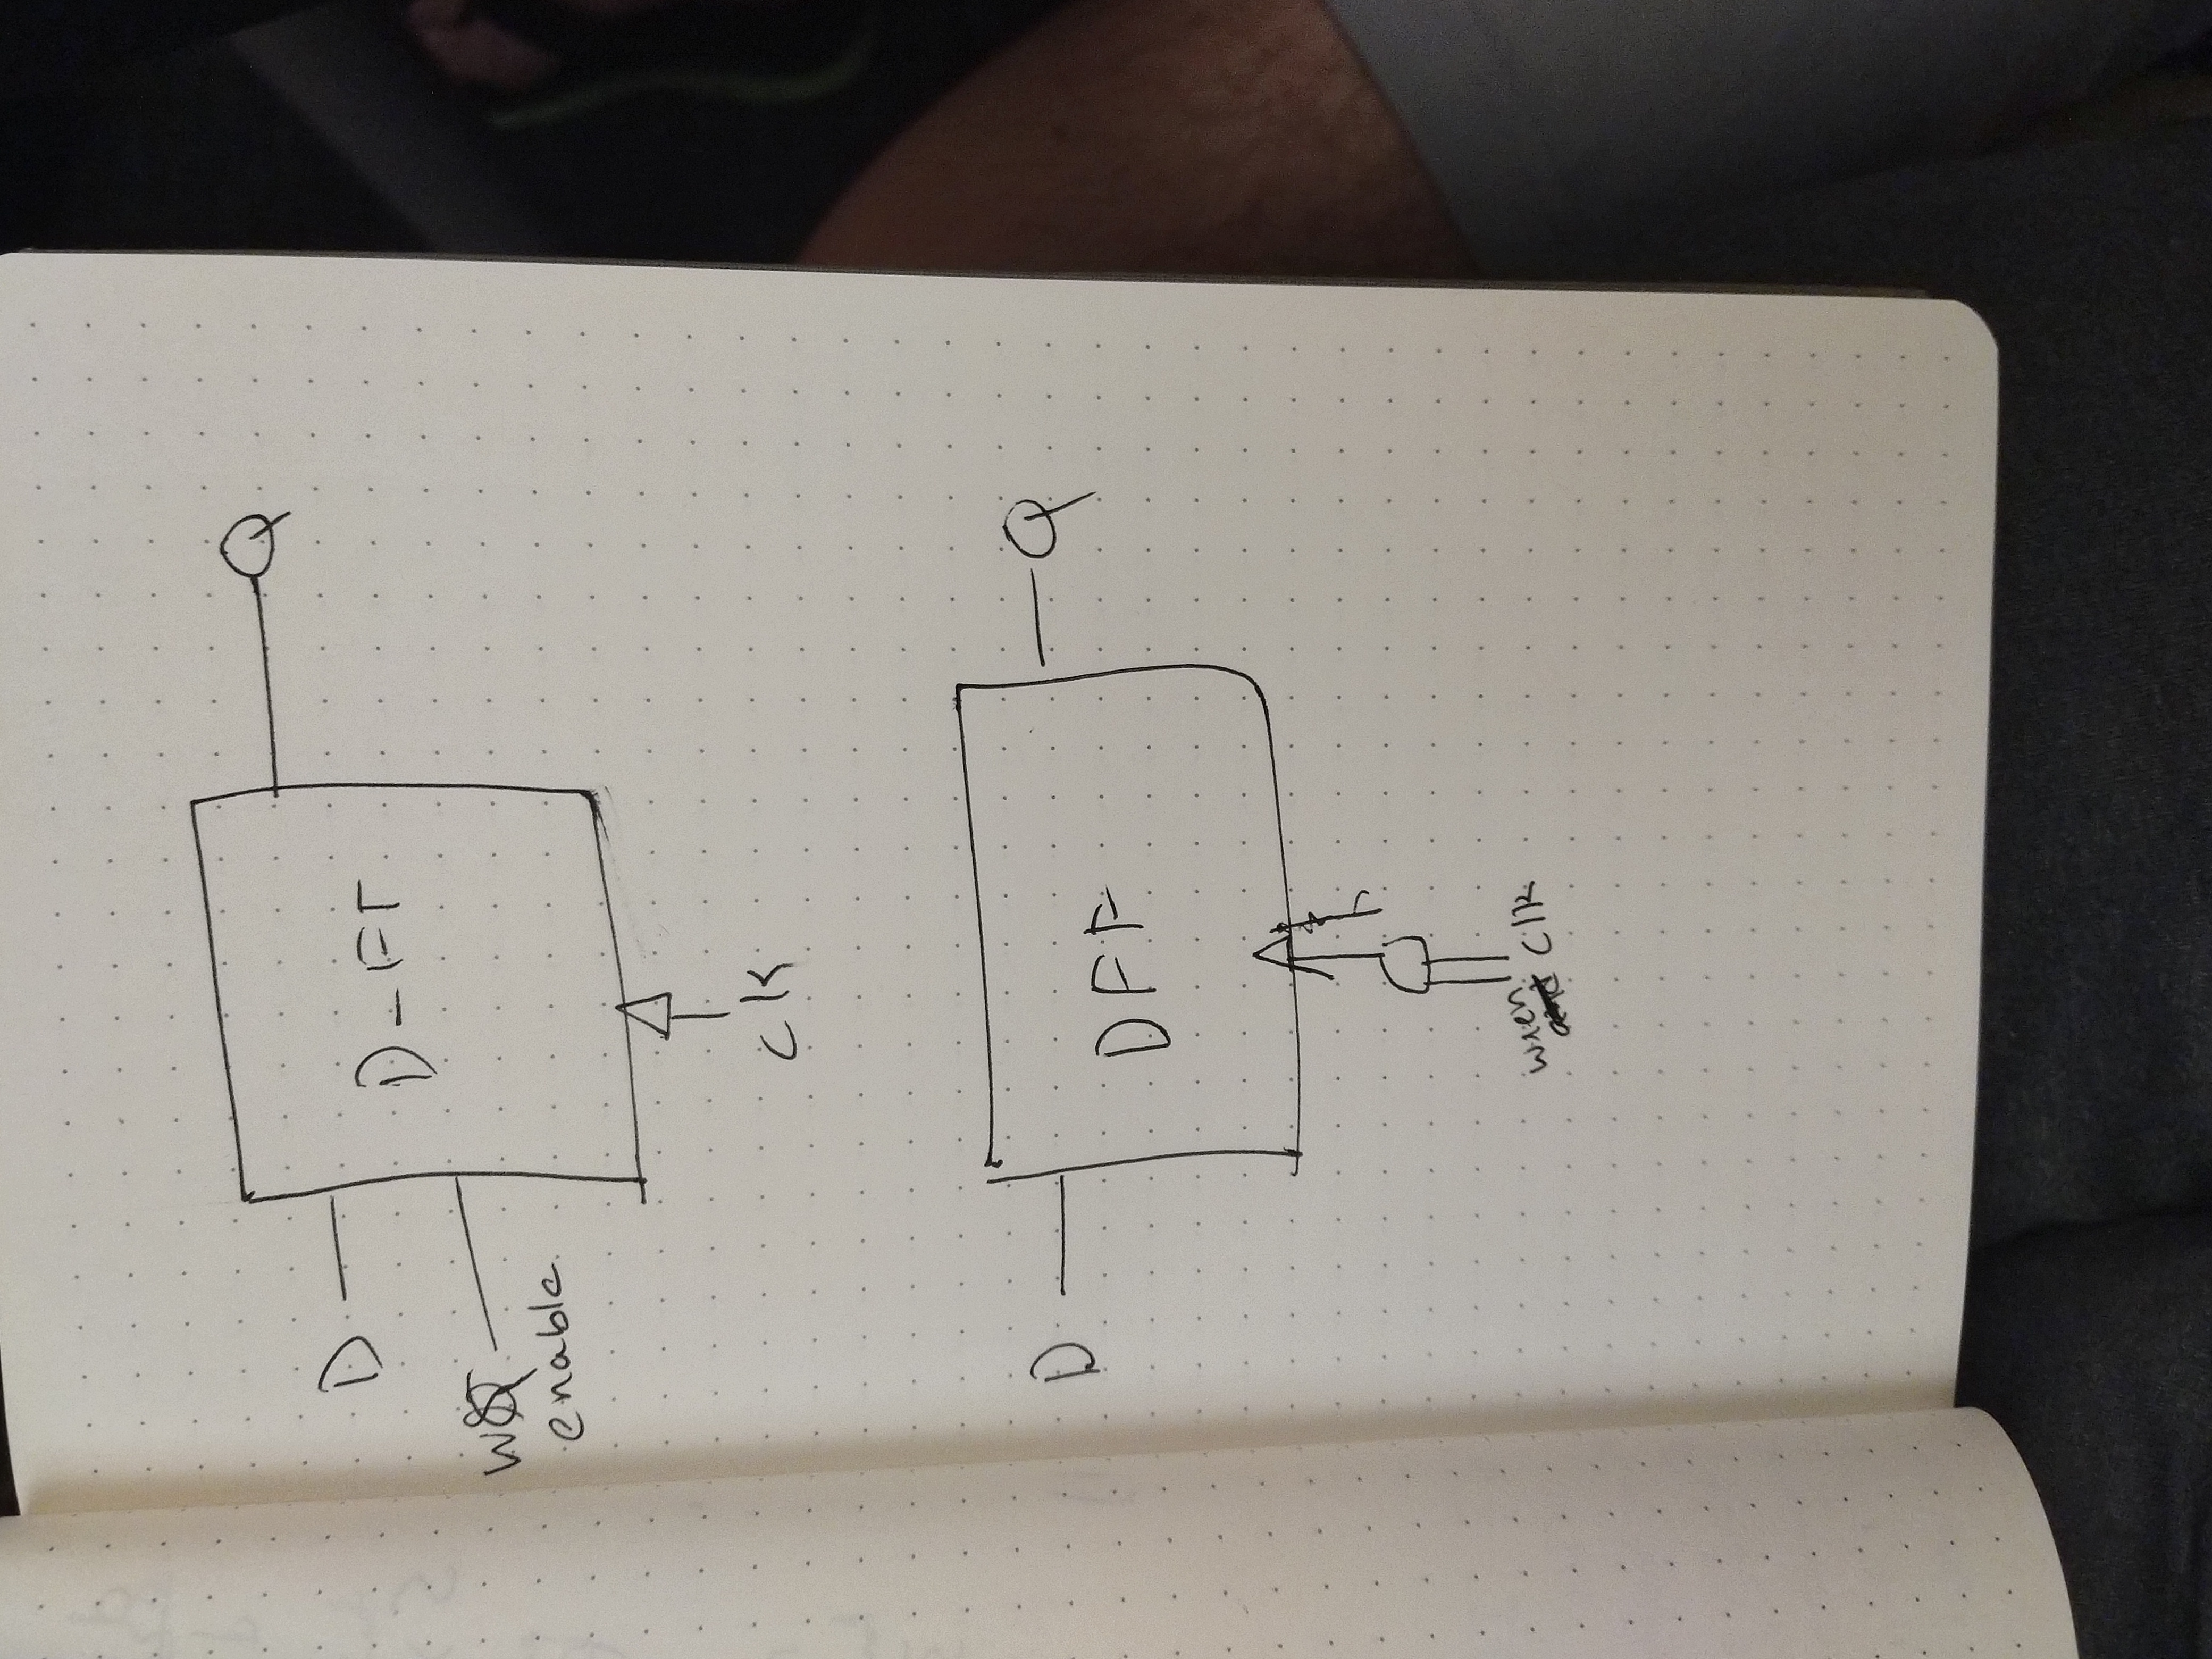 Q
D
D-FF
W
enable
clk
D
Q
DFF
wren
clk